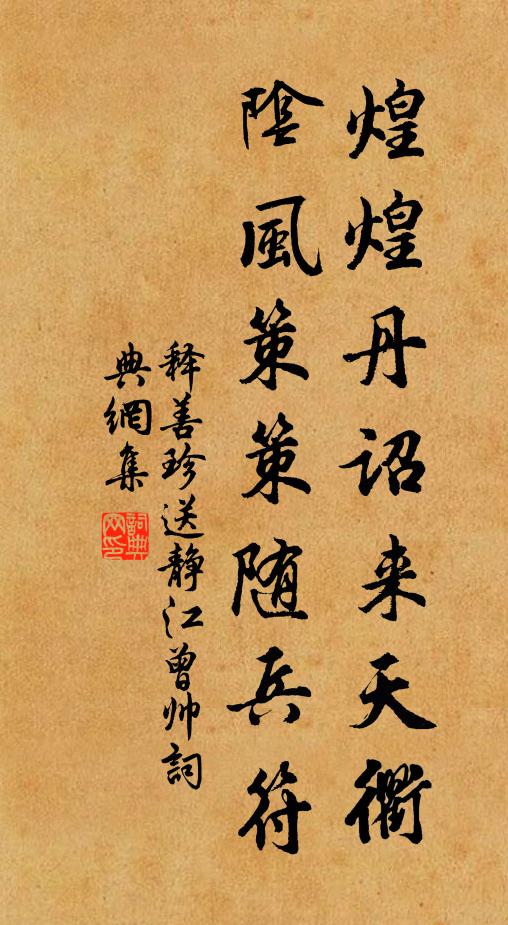 煌煌丹诏来天衢
陰風策策随兵符
释善珍送静江曾帅詞
典網集
詞典網印